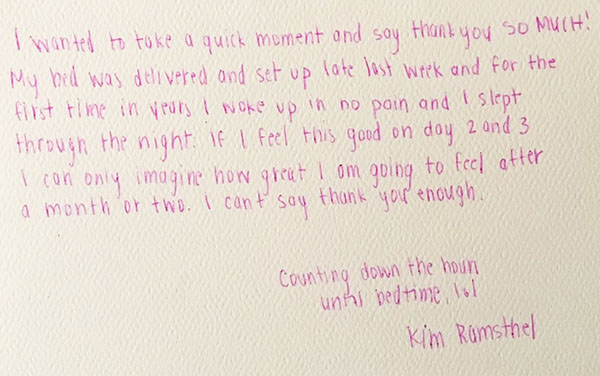 I wanted to take a quick moment and say thank you SO MUCH!
My bed was delivered and set up late last week and for the
first time in years I woke up in no pain and I slept
through the night. If I feel this good on day 2 and 3
I can only imagine how great I am going to feel after
a month or two. I can't say thank you enough.
Counting down the hours
until bedtime, lol
Kim Ramsthel